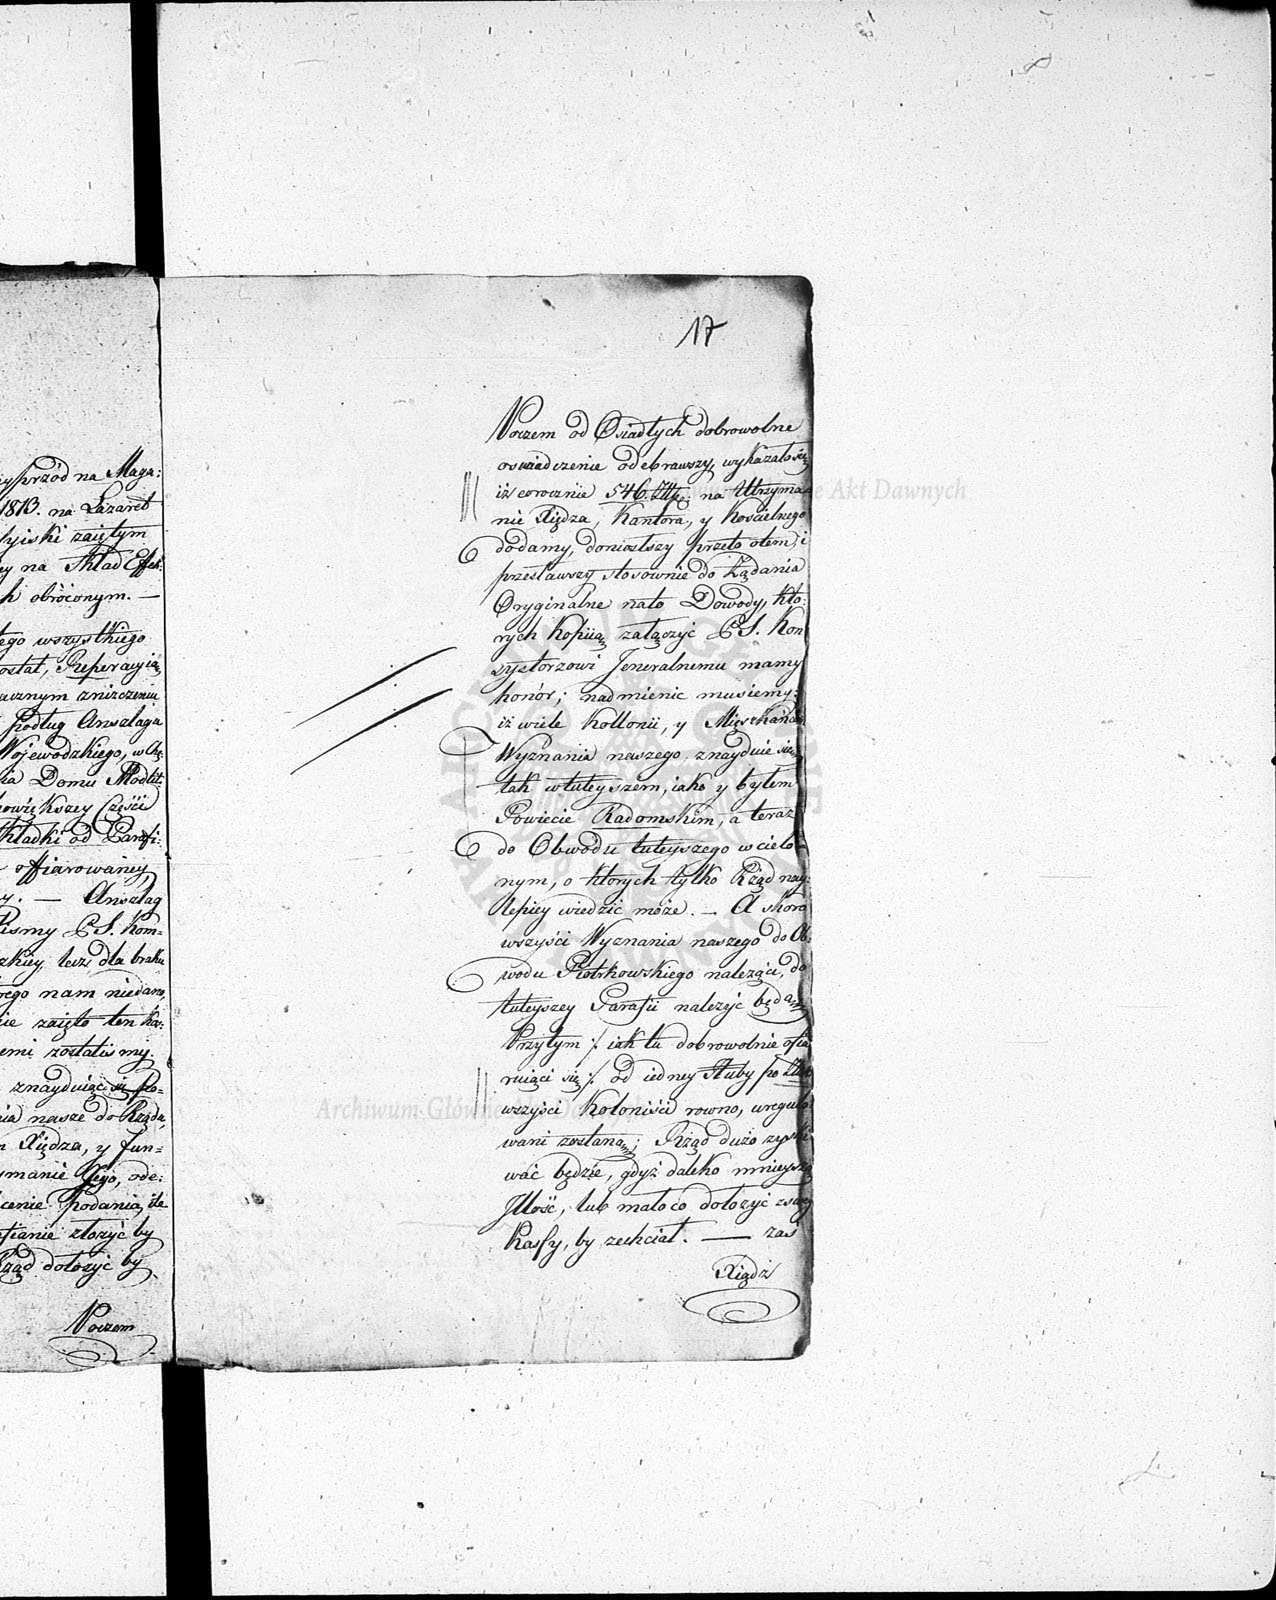 yprzód na Maga:
1813. na Lazaret
zaiętym
na Skład Effek:
h obróconym. —
tego wszystkiego
ostał, Reperacyią
znacznym zniszczeniu
podług Anszlaga
Wojewodzkiego, w
Domu Modlit:
powiększey Części
składki od Parafi:
offiarowaney
y. — Anszlag
Pismy P S. Kom=
lecz, dla braku
nam niedano,
zaięto ten
zostalismy.
znayduiąci się po=
nia nasze do Rządu,
Xiędza, y fun=
ymanie Jego, ode:
cenie podania, ile
złożyć by
Rząd dołożyć by
Poczem
17
Poczem od Osiadłych dobrowolne
oswiadczenie odebrawszy, wykazało się
iż corocznie 546. Złtp. na Utrzyma=
nie Xiędza, Kantora, y Koscielnego
dodamy, doniosłszy przeto otem, i
przesławszy stosownie do Żądania
Oryginalne nato Dowody, któ:
rych kopiią załączyć P S. Kon
systorzowi Jeneralnemu mamy
honór; nadmienic musiemy:
iż wiele Kollonii, y Mięszkańców
Wyznania naszego, znayduie się
tak wtuteyszem, iako y byłem
Powiecie Radomskim, a teraz
do Obwodu tuteyszego wcielo=
nym, o ktorych tylko Rząd nay:
lepiey wiedzić może. — A skoro
wszyści Wyznania naszego do Ob:
wodu Piotrkowskiego należąci, do
tuteyszey Parafii należyć będą
Przytym /: iak tu dobrowolnie ofia
ruiąci się :/ od iedney Huby po Złt
wszyści Koloniści rowno, uregulo
wani zostaną; Rząd dużo zyski
wać będzie, gdyż daleko mnieyszą
Jllość, lub mało co dołożyć z swey
Kassy, by zechciał. — zaś
Xiądz
Archiwum Główne Akt Dawnych